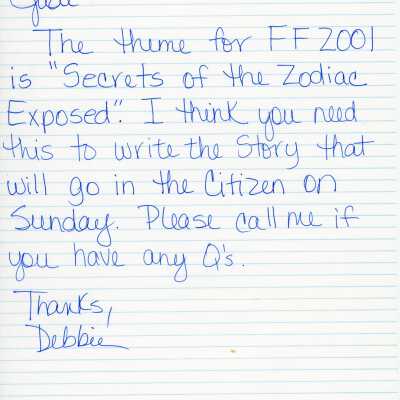 The theme for FF 2001
is "Secrets of the Zodiac
Exposed". I think you need
this to write the Story that
will go in the Citizen on
Sunday. Please call me if
you have any Q's.
Thanks,
Debbie